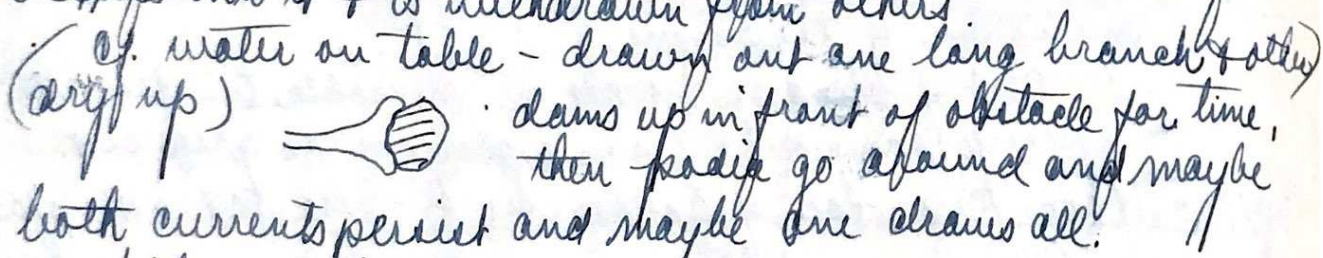 is withdrawn from others.
(cf. water on table – drawn out one long branch & other)
(dry up) dams up in front of obstacle for time,
then podia go around and maybe
both currents persist and maybe one draws all.